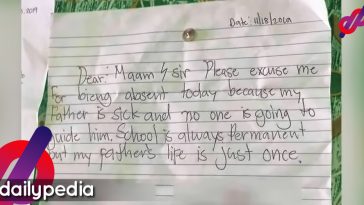 2019
Date: 11/18/2019
Dear: Maam/sir Please excuse me
for bieng absent today because my
Father is sick and no one is going to
guide him. School is always Permanent
but my father's life is just once.
dailypedia